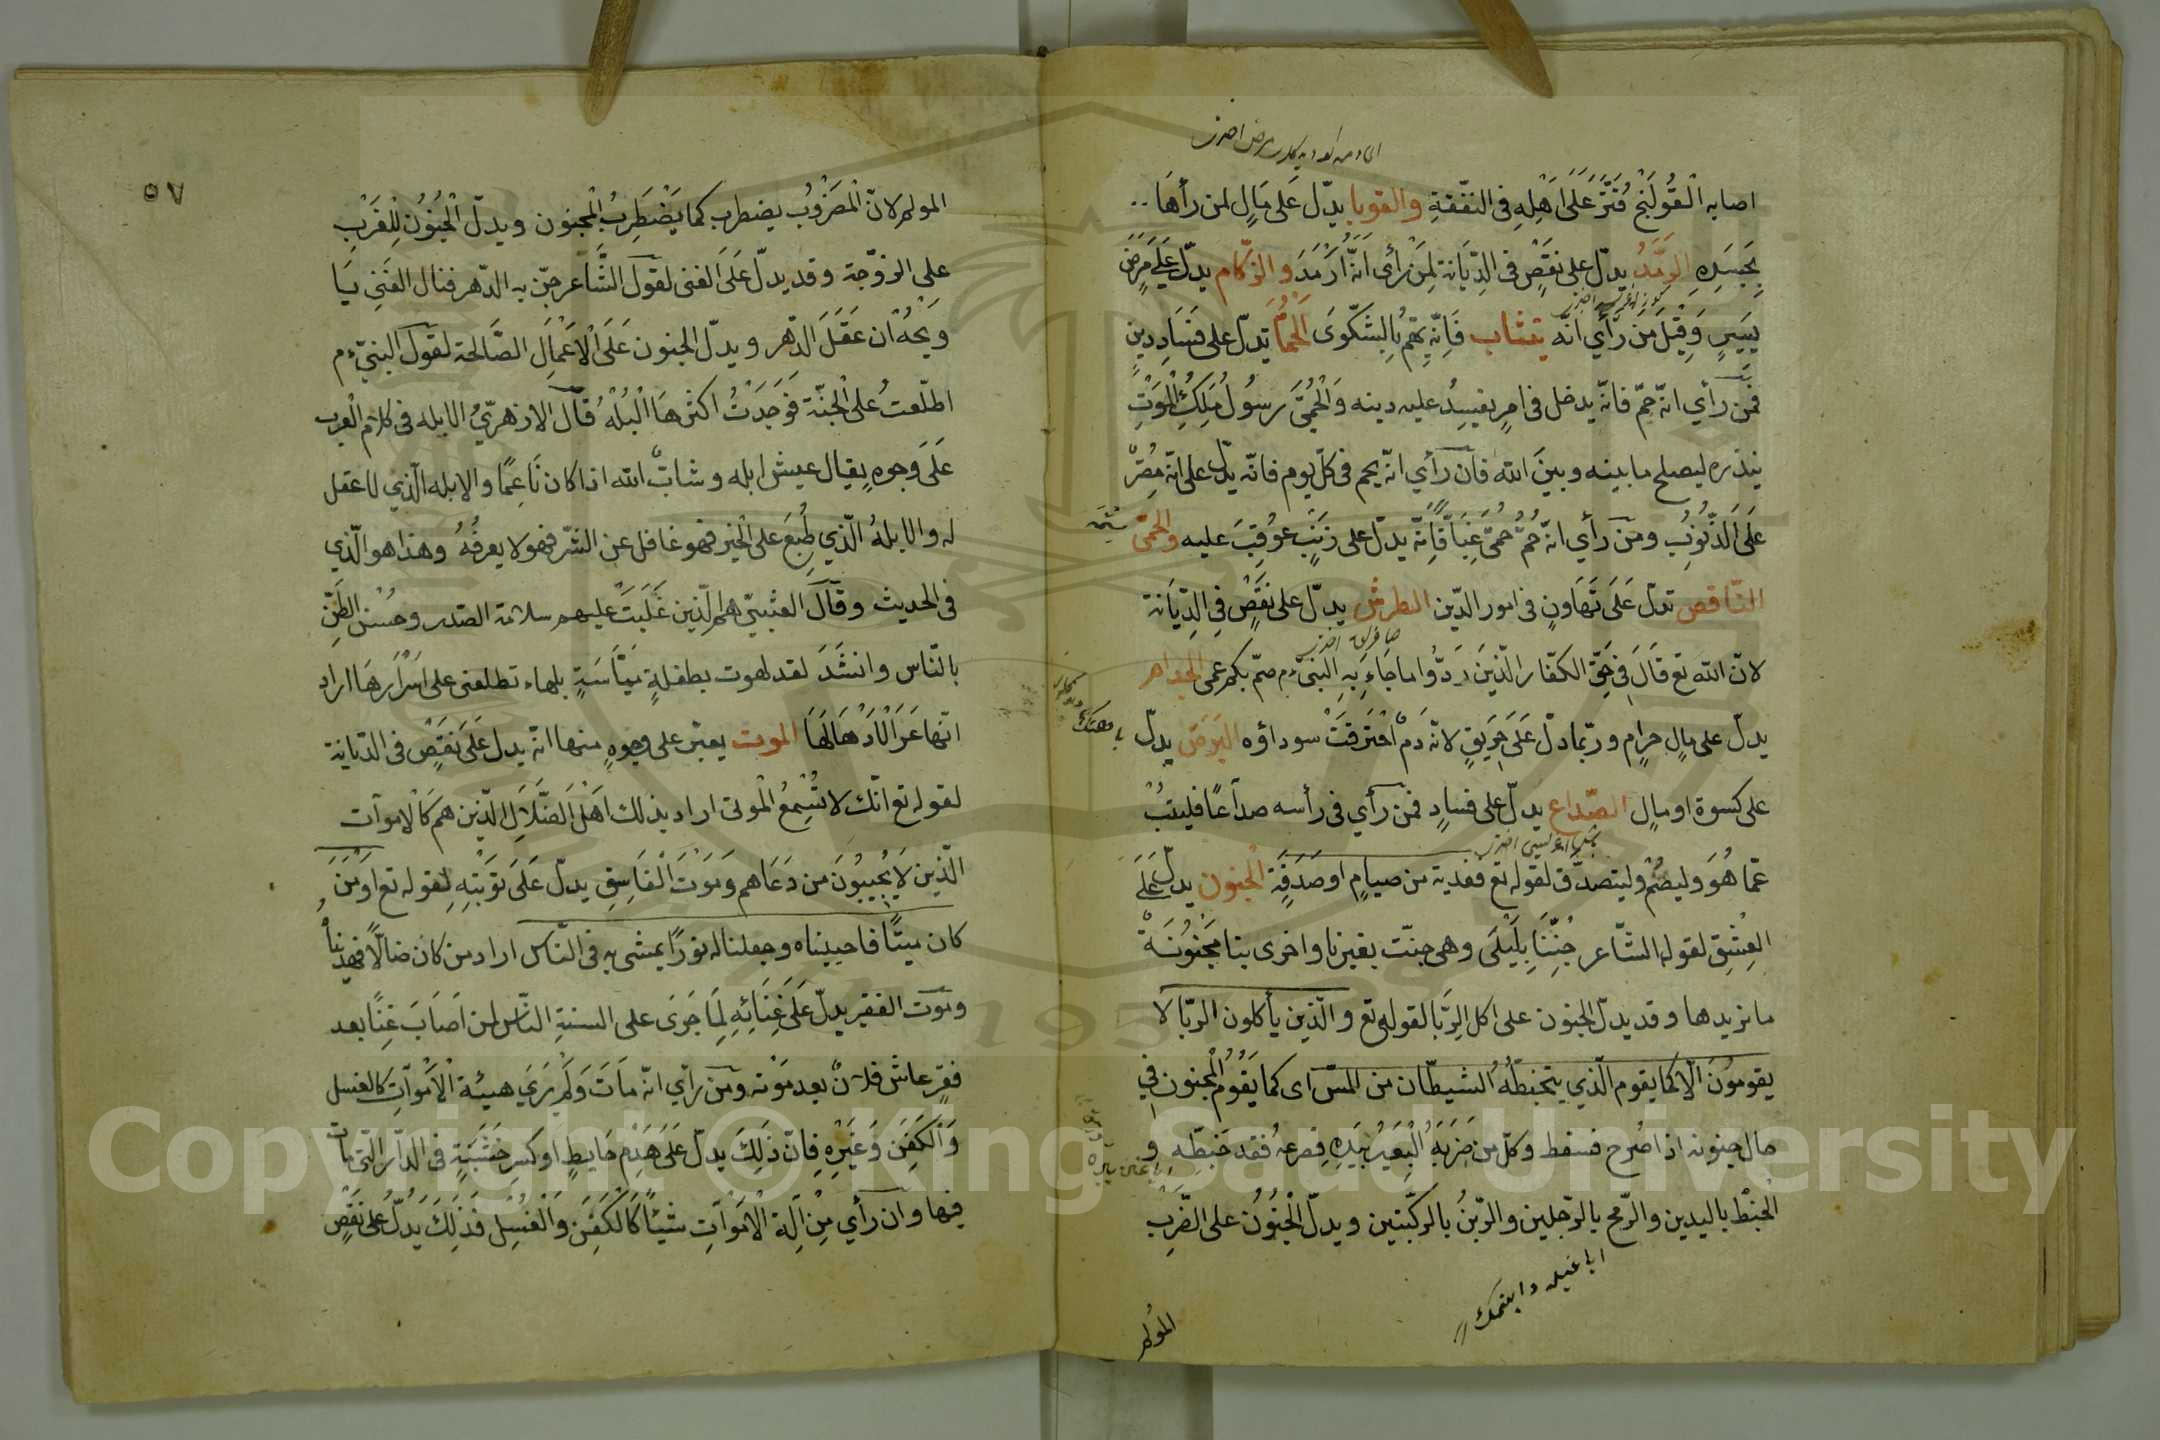 اصابه الْقُولَنْجُ قُتِّرَ عَلَى اَهْلِهِ فِى النّفَقةِ والقوبا يدلّ عَلى مَالٍ لمن رأهَا
بِجَسَدِهِ الرَمَدُ يدلّ على نقصٍ فى الدِّيَانة لِمَنْ رأى اَنّه اَرْمَدَ و الزكام يدلّ عَلَى مَرَضٍ
يسيرٍ وَقِيْلَ مَن رَأي انّه يتثاب فَاِنّه يهمّ بِالشكّوىَ الحُمَّا تدلّ على فَسَادِ دينٍ
فمن رأي انّه حمّ فانّه يدخل فى امرٍ يفسِدُ عليه دينه وَالْحُمّىَ رسوُل مَلَكِ الْمَوْتِ
ينذره ليصلح ما بينه وبينَ الله فاَن رأي انّه يحم فى كلّ يوم فانّه يدلّ على انّه مِصُرّ
عَلَى الذّنُوبُ ومَن رأي انّه حُمّ حُمّىً غِبًّا فَاِنّه يدلّ على ذَنبٍ عوُقِبَ عليه والحمّى
النّاقص تدلّ عَلَى تَهَاوُنٍ فى امور الدّين الطرش يدلّ على نقَصٍ فِى الدِّيَانة
لانّ الله تع قَالَ فى حَقِّ الكفّار الّذينَ رَدّوُا ما جَاءَ بِهِ النبىّءم صمّ بكم عمى الجذام
يدلّ على مالٍ حرامٍ وربّما دلّ عَلَى حَرِيقٍ لانّه دَم احْتَرقتْ سوداؤه البَرَص يدلّ
على كسوة اومالٍ الصّداع يدلّ على فسادٍ فمن رأي فى رأسه صداعًا فليتُبْ
عمّا هُوَ وليصُمْ وليتصدّق لقوله تع ففدية من صيامٍ اوصَدَقةٍ الجنون يدلّ عَلَى
العِشْقِ لقوله الشّاعر جُنِنّا بِلَيْلَى وهى جنّت بغيرنا واخرى بنا مَجْنُونَة
ما نريدها وقد يدلّ الجنون على اكل الرِّبَا لقوله تع والّذين يأكلون الرّبا لا
يقومونَ الّا كما يقوم الّذي يتخبّطهُ الشيطان من المسّ اى كما يقَوُمُ المجنون فى
حال جنونه اذا صُرِح فسقط وكلّ من ضَربَهُ الْبَعيرُ بيَدِهِ فصرعهُ فقد خبَطَه و
الْخبْطُ باليدين والرّمح بالرّجلين والزّبنُ بالركبتين ويدلّ الْجنُونُ على الضّرب
المولم
٥٧
المولم لانّ الْمَضْروُب يضطرب كما يَضْطَرِبُ المْجنون ويدلّ الْجُنوُنُ لِلْعَزَبْ
على الزوّجة وقد يدلّ عَلَى الغنى لقول الشّاعر جنّ به الدّهر فنال الغَنى يَا
وَيْحُهُ اَن عَقَلَ الدّهر ويدلّ الجنون عَلَى الْاَعْمَالِ الصَّالحة لقول النبىّءم
اطلّعتُ على الْجنّة فَوَجَدَتُ اكثرهَا الْبُلْهُ قال الازهريّ الابله فى كلام العرب
عَلَى وجوهٍ يقال عيش ابله وشابّ ابله اذا كان نَاعِمًا والابله الّذي لا عقل
له والابلهُ الّذي طُبِعَ على الْخير فهو غافل عن الشرّ فهو لا يعرفُهُ وهذا هو الّذي
فى الحديث وقال القتبىّ هم الّذين غَلَبَتْ عليهم سلامة الصّدر وحُسْن الظنِّ
بالنّاس وانشَدَ لقد لهوت بطفلةٍ ميّاسَةٍ بلهاء تطلعنى على اسْرارهَا اراد
انّها غرّا لا دَهَا لَهَا الموت يعبّر على وجوهٍ منها انّه يدل عَلَى نَقصٍ فى الدّيانة
لقوله تع انّك لا تُسْمِعُ الْموتى اراد بذلك اَهْل الضّلَال الّذين هم كالاموات
الّذين لَا يُجيبُونَ من دَعَاهم وَمَوتَ الفَاسِقِ يدلّ عَلَى تَوْبَتِهِ لقوله تع اَوَمَنَ
كان ميتًا فاحييناه وجعلنا له نورًا يمشى به فى النّاس اراد من كان ضالّا فهديناُ
ومَوت الفقير يدلّ عَلَى غِنَائِهِ لِمَا جَرَى على السنةِ النّاس لمن اَصَابَ غِنًا بعد
فقرٍ عاش فلانٌ بعد مَوْته ومن رأي انّه مَاتَ وَلَمْ يَرَىَ هيئة الْاَمْوَاتِ كالغسل
وَالكَفَن وَغَيْرِهِ فاِنّ ذلِكَ يدلّ عَلَى هَدْمِ حَايطٍ اوكَسرِ خَشَبَةٍ فى الدّار الّتى مات
فيها واَن رأي مِنْ اَلَة الْاَمْوَاتِ شيْئًا كَالْكَفَن وَالْغسُل فذلك يَدُلّ على نقَصٍ